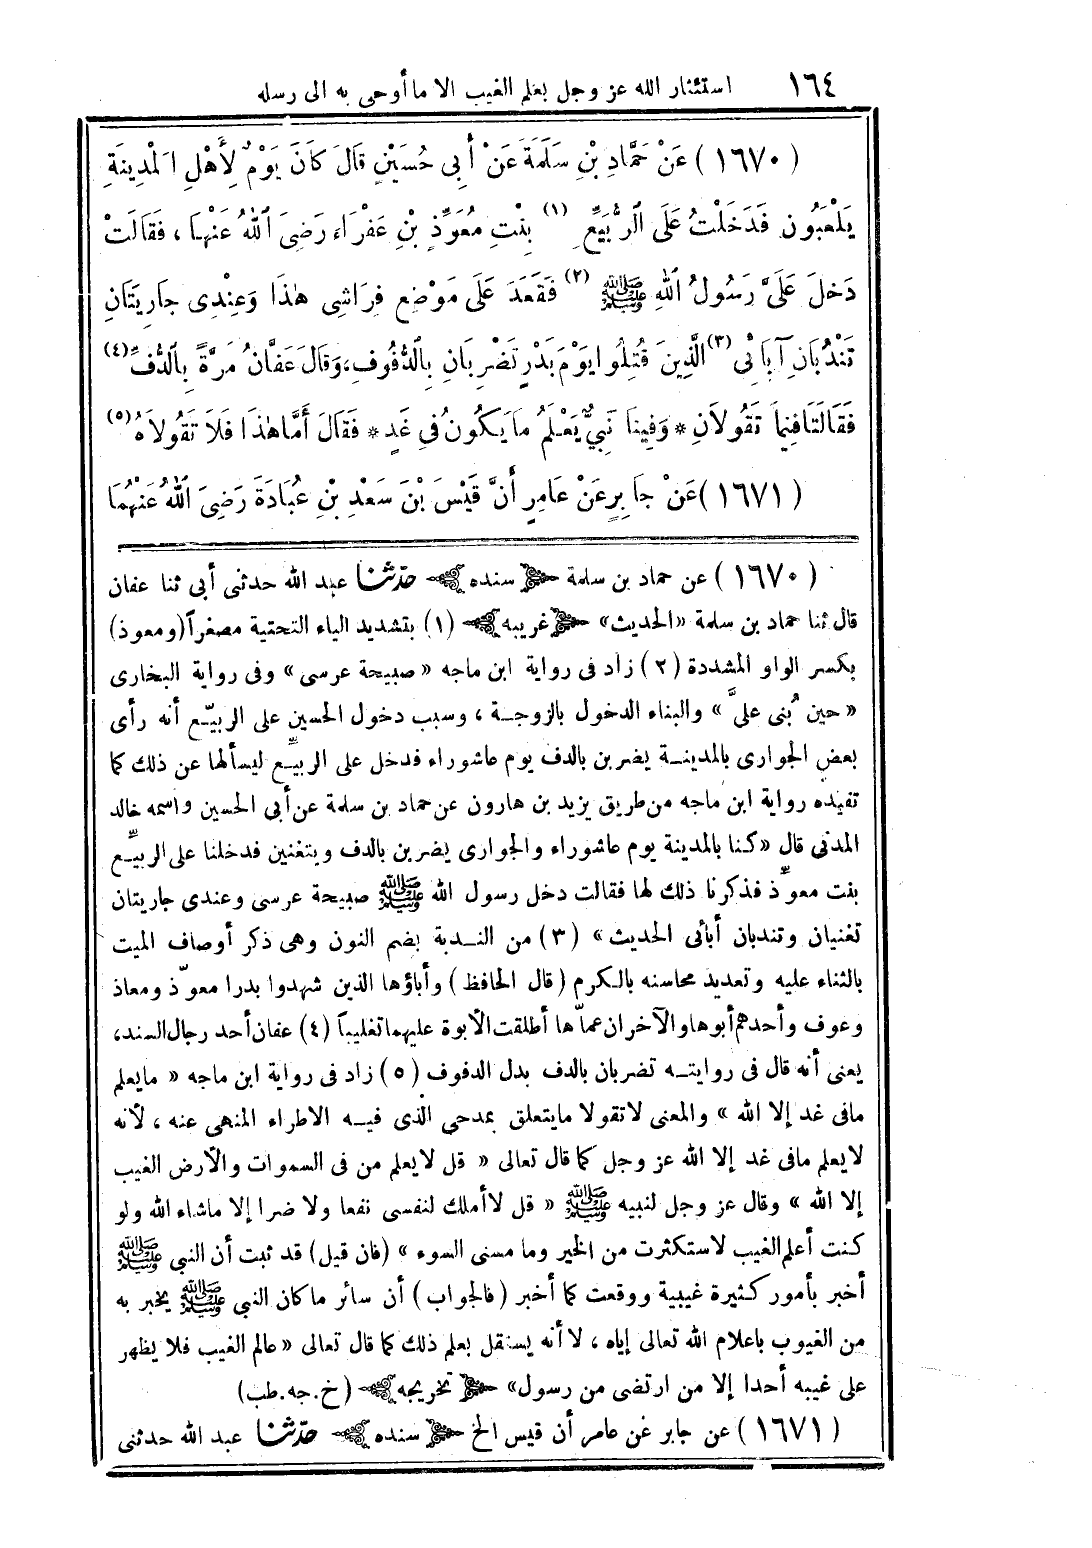 ١٦٤ استئثار الله عز وجل بعلم الغيب الا ما أوحى به الى رسله
(١٦٧٠) عَنْ حَمَّادِ بْنِ سَلَمَةَ عَنْ أَبِى حُسَيْنٍ قَالَ كَانَ يَوْمٌ لِأَهْلِ الْمَدِينَةِ
يَلْعَبُونَ فَدَخَلْتُ عَلَى الرُّبَيِّعِ (١) بِنْتِ مُعَوِّذِ بْنِ عَفْرَاءَ رَضِىَ اللهُ عَنْهَا ، فَقَالَتْ
دَخَلَ عَلَىَّ رَسُولُ اللهِ ﷺ (٢) فَقَعَدَ عَلَى مَوْضِعِ فِرَاشِى هٰذَا وَعِنْدِى جَارِيَتَانِ
تَنْدُبَانِ آبَائِى (٣) الَّذِينَ قُتِلُوا يَوْمَ بَدْرٍ تَضْرِبَانِ بِالدُّفُوفِ، وَقَالَ عَفَّانُ مَرَّةً بِالدُّفِّ (٤)
فَقَالَتَا فِيمَا تَقُولَانِ * وَفِينَا نَبِىٌّ يَعْلَمُ مَا يَكُونُ فِى غَدٍ * فَقَالَ أَمَّا هٰذَا فَلَا تَقُولَاهُ (٥)
(١٦٧١) عَنْ جَابِرٍ عَنْ عَامِرٍ أَنَّ قَيْسَ بْنَ سَعْدِ بْنِ عُبَادَةَ رَضِىَ اللهُ عَنْهُمَا
(١٦٧٠) عن حماد بن سلمة سنده حدّثنا عبد الله حدثنى أبى ثنا عفان
قال ثنا حماد بن سلمة «الحديث» غريبه (١) بتشديد الياء التحتية مصغراً (ومعوذ)
بكسر الواو المشددة (٢) زاد فى رواية ابن ماجه « صبيحة عرسى » وفى رواية البخارى
« حين بُنى علىَّ » والبناء الدخول بالزوجة ، وسبب دخول الحسين على الربيّع أنه رأى
بعض الجوارى بالمدينة يضربن بالدف يوم عاشوراء فدخل على الربيّع ليسألها عن ذلك كما
تفيده رواية ابن ماجه من طريق يزيد بن هارون عن حماد بن سلمة عن أبى الحسين واسمه خالد
المدنى قال « كنا بالمدينة يوم عاشوراء والجوارى يضربن بالدف ويتغنين فدخلنا على الربيّع
بنت معوّذ فذكرنا ذلك لها فقالت دخل رسول الله ﷺ صبيحة عرسى وعندى جاريتان
تغنيان وتندبان أبائى الحديث » (٣) من الندبة بضم النون وهى ذكر أوصاف الميت
بالثناء عليه وتعديد محاسنه بالكرم (قال الحافظ) وأباؤها الذين شهدوا بدرا معوّذ ومعاذ
وعوف وأحدهم أبوها والآخران عماّها أطلقت الأبوة عليهما تغليباً (٤) عفان أحد رجال السند،
يعنى أنه قال فى روايته تضربان بالدف بدل الدفوف (٥) زاد فى رواية ابن ماجه « مايعلم
مافى غد إلا الله » والمعنى لاتقولا مايتعلق بمدحى الذى فيه الاطراء المنهى عنه ، لأنه
لايعلم مافى غد إلا الله عز وجل كما قال تعالى « قل لايعلم من فى السموات والأرض الغيب
إلا الله » وقال عز وجل لنبيه ﷺ « قل لاأملك لنفسى نفعا ولا ضرا إلا ماشاء الله ولو
كنت أعلم الغيب لاستكثرت من الخير وما مسنى السوء » (فان قيل) قد ثبت أن النبى ﷺ
أخبر بأمور كثيرة غيبية ووقعت كما أخبر (فالجواب) أن سائر ما كان النبى ﷺ يخبر به
من الغيوب باعلام الله تعالى إياه ، لا أنه يستقل بعلم ذلك كما قال تعالى « عالم الغيب فلا يظهر
على غيبه أحدا إلا من ارتضى من رسول» تخريجه (خ.جه.طب)
(١٦٧١) عن جابر عن عامر أن قيس الخ سنده حدّثنا عبد الله حدثنى